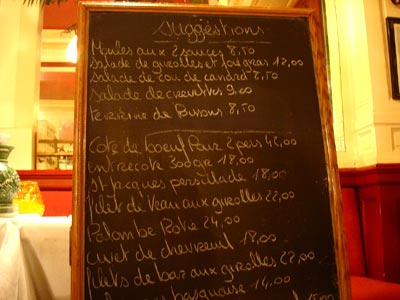 Suggestions
Moules aux 2 sauces 8,50
salade de girolles et foie gras 12,00
salade de cou de canard 8,50
salade de crevettes 9,00
terrine de Bisons 8,50
Côte de boeuf Pour 2 pers 42,00
entrecote 300gr 18,00
St Jacques persillade 18,00
filet de Veau aux girolles 22,00
Palombe Rotie 24,00
civet de chevreuil 18,00
filets de bar aux girolles 22,00
basquaise 14,00